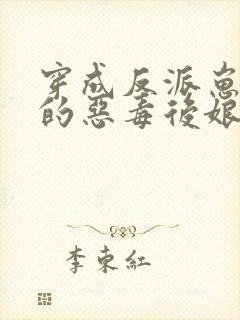 穿成反派崽
的惡毒後娘
李東紅